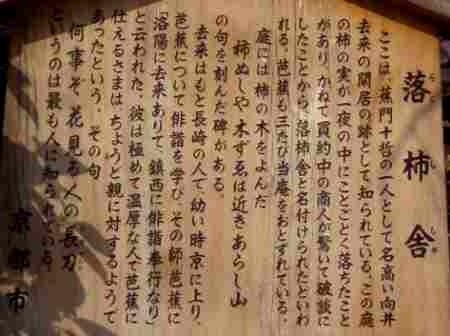 落柿舎
らくししゃ
ここは、蕉門十哲の一人として名高い向井
去来の閑居の跡として知られている。この庭
の柿の実が一夜の中にことごとく落ちたこと
があり、かねて買約中の商人が驚いて破談に
したことから、落柿舎と名付けられたといわ
れる。芭蕉も三たび当庵をおとずれている。
庭には柿の木をよんだ
柿ぬしや木ずゑは近きあらし山
の句を刻んだ碑がある。
去来はもと長崎の人で、幼い時京に上り、
芭蕉について俳諧を学び、その師芭蕉に
「洛陽に去来ありて、鎮西に俳諧奉行なり」
と云われた。彼は極めて温厚な人で芭蕉に
仕えるさまは、ちょうど親に対するようで
あったという。その句
何事ぞ花見る人の長刀
というのは最も人に知られている。
京都市